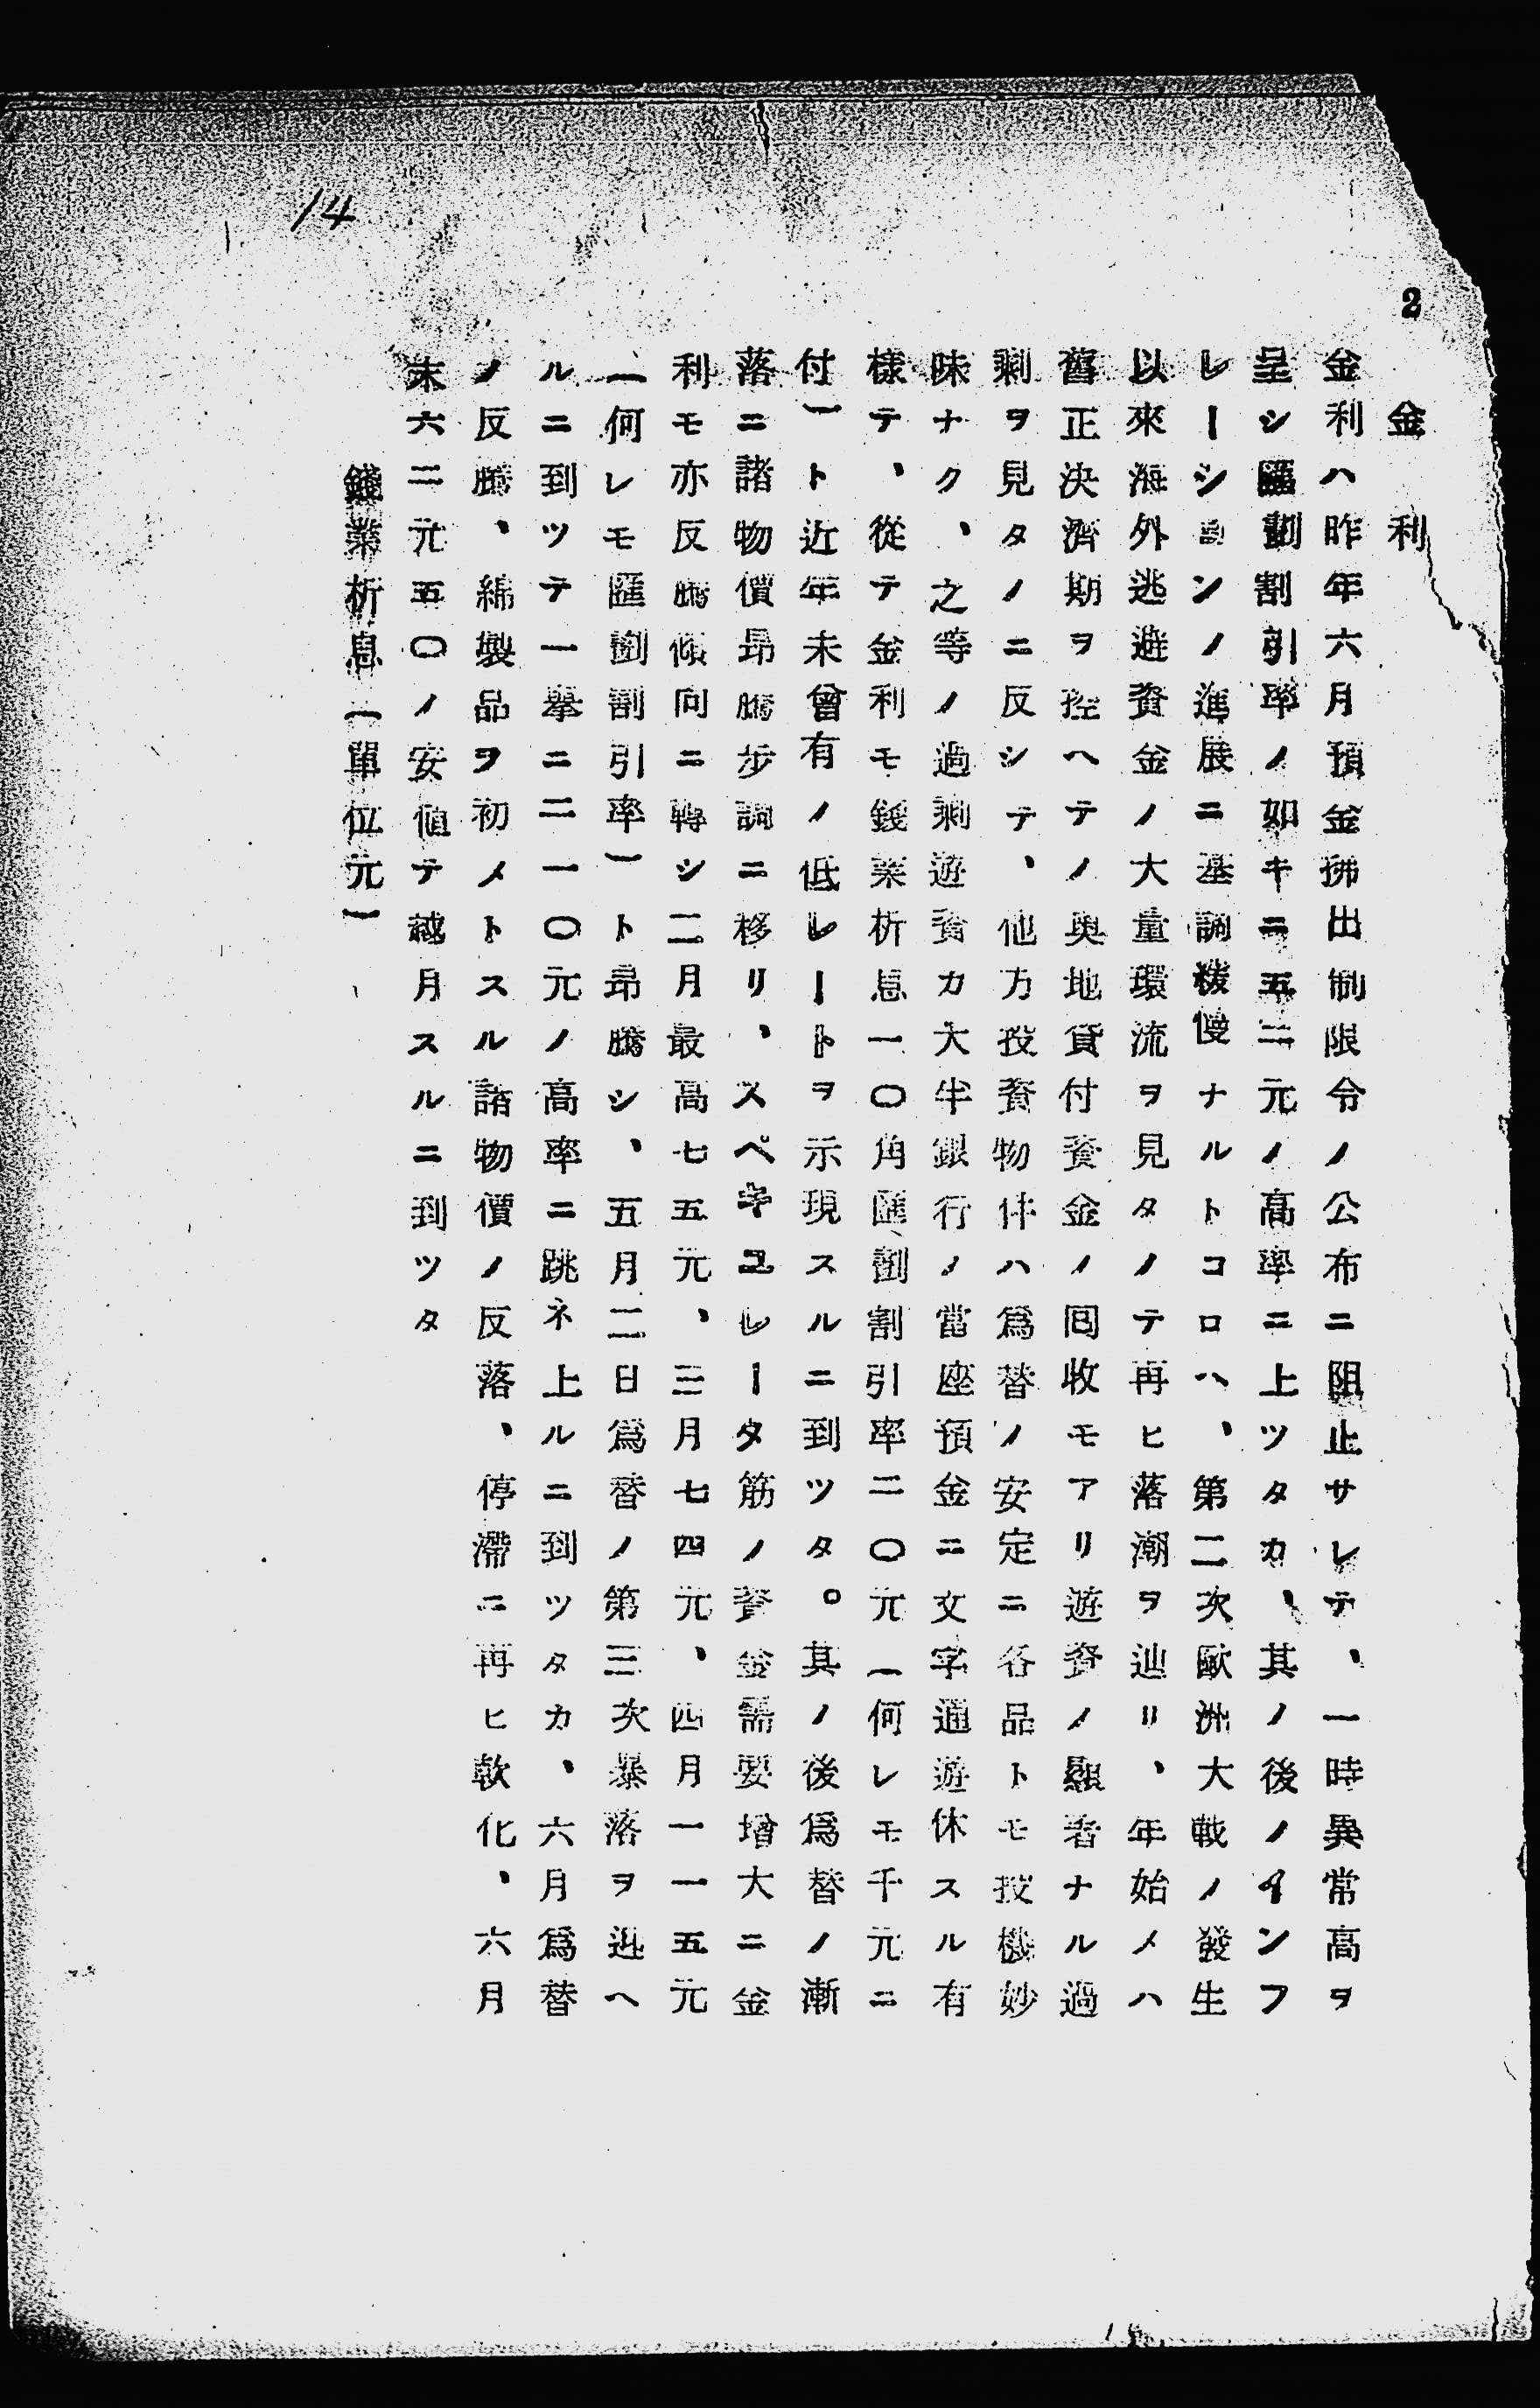 14
2
金利
金利ハ昨年六月預金拂出制限令ノ公布ニ阻止サレテ、一時異常高ヲ
呈シ匯劃割引率ノ如キニ五二元ノ高率ニ上ツタカ、其ノ後ノインフ
レーシヨンノ進展ニ基調緩慢ナルトコロハ、第二次歐洲大戰ノ發生
以來海外逃避資金ノ大量環流ヲ見タノテ再ヒ落潮ヲ辿リ、年始メハ
舊正決濟期ヲ控ヘテノ奧地貸付資金ノ囘收モアリ遊資ノ顯著ナル過
剩ヲ見タノニ反シテ、他方投資物件ハ爲替ノ安定ニ各品トモ投機妙
味ナク、之等ノ過剩遊資カ大半銀行ノ當座預金ニ文字通遊休スル有
樣テ、從テ金利モ錢業析息一〇角匯劃割引率二〇元(何レモ千元ニ
付)ト近年未曾有ノ低レートヲ示現スルニ到ツタ。其ノ後爲替ノ漸
落ニ諸物價昻騰步調ニ移リ、スペキユレータ筋ノ資金需要增大ニ金
利モ亦反騰傾向ニ轉シ二月最高七五元、三月七四元、四月一一五元
(何レモ匯劃割引率)ト昻騰シ、五月二日爲替ノ第三次暴落ヲ迎ヘ
ルニ到ツテ一擧ニ二一〇元ノ高率ニ跳ネ上ルニ到ツタカ、六月爲替
ノ反騰、綿製品ヲ初メトスル諸物價ノ反落、停滯ニ再ヒ軟化、六月
末六二元五〇ノ安値テ越月スルニ到ツタ
錢業析息(單位元)